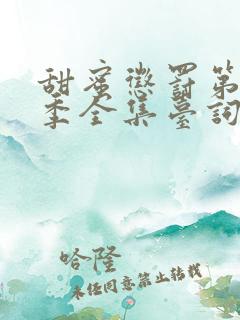 甜蜜懲罰第
季全集臺詞
哈隆
未经同意禁止转载